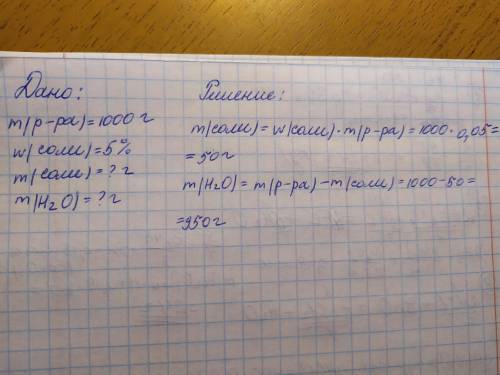 Дано:
m(р-ра)=1000 г
w(соли)=5%
m(соли)=? г
m(H₂O)=? г
Решение:
m(соли)=w(соли)·m(р-ра)=1000·0,05=
=50г
m(H₂O)=m(р-ра)-m(соли)=1000-50=
=950г